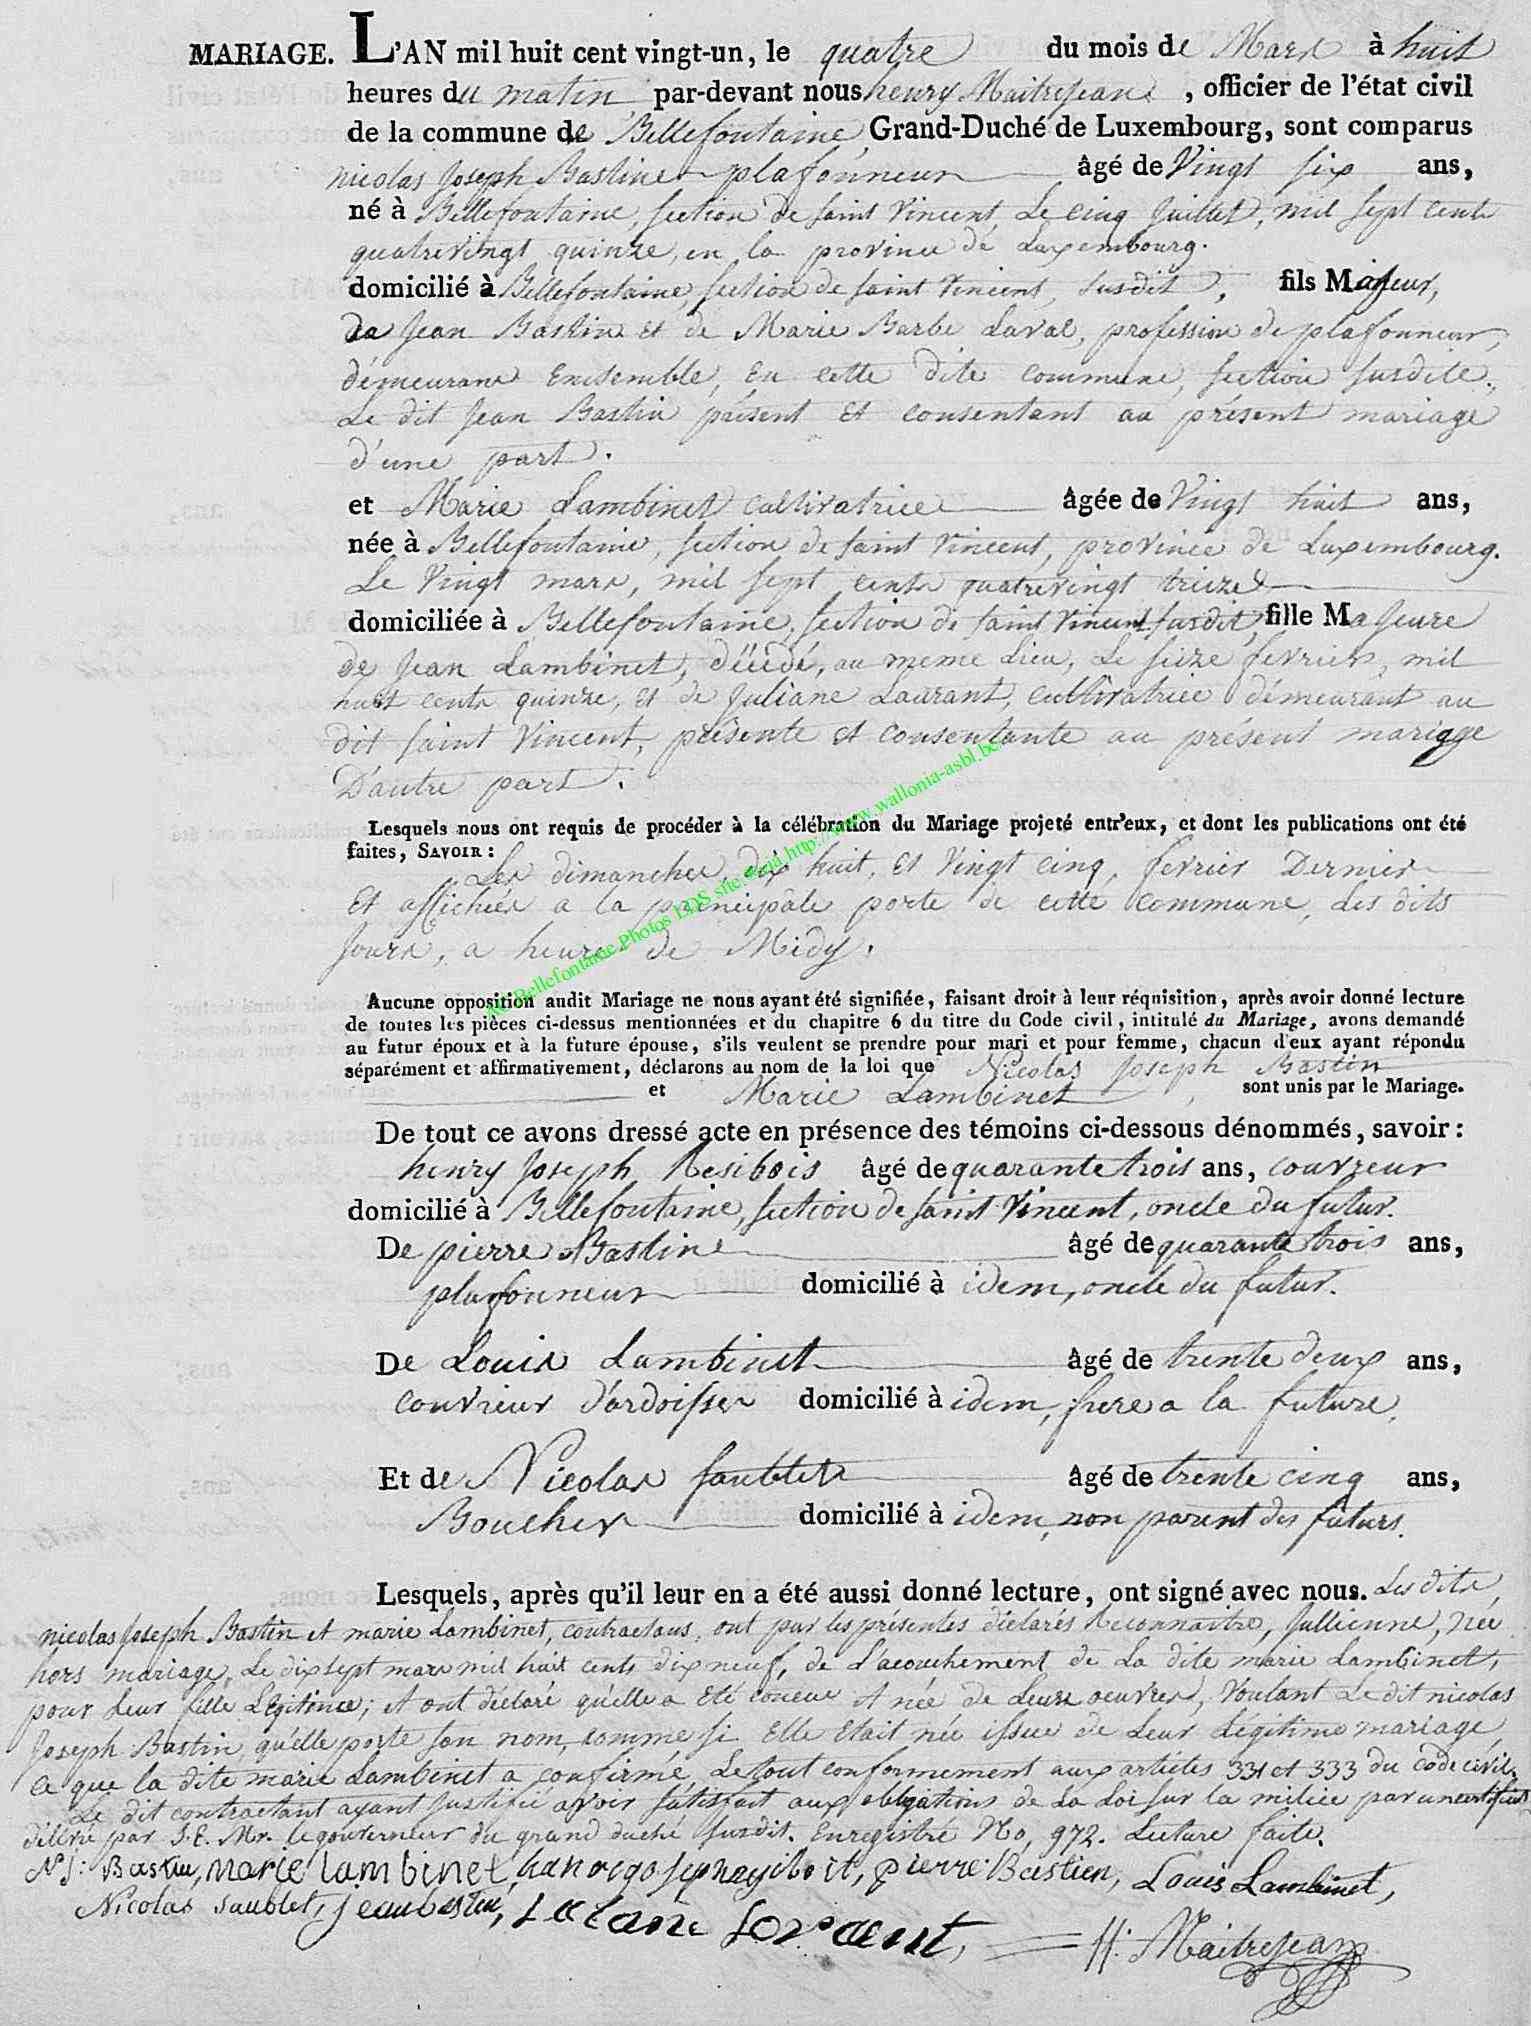 MARIAGE. L'AN mil huit cent vingt-un, le quatre du mois de Mars à huit
heures du matin par-devant nous henry Maitrejean, officier de l'état civil
de la commune de Bellefontaine, Grand-Duché de Luxembourg, sont comparus
nicolas Joseph Bastin plafonneur âgé de Vingt six ans,
né à Bellefontaine, section de saint Vincent, Le cinq Juillet, mil sept cents
quatrevingt quinze, en la province de Luxembourg.
domicilié à Bellefontaine, section de saint Vincent, susdit, fils Majeur,
de Jean Bastin et de Marie Barbe Laval, profession de plafonneur,
démeurans Ensemble, En cette dite commune, section susdite,
Le dit Jean Bastin présent et consentant au présent mariage
d'une part.
et Marie Lambinet cultivatrice âgée de Vingt huit ans,
née à Bellefontaine, section de saint Vincent, province de Luxembourg.
Le Vingt mars, mil sept cents quatrevingt treize
domiciliée à Bellefontaine, section de saint Vincent susdit, fille Majeure
de Jean Lambinet, décédé, au meme Lieu, Le seize fevrier, mil
huit cents quinze, et de Juliane Laurant, cultivatrice démeurant au
dit saint Vincent, présente et consentante au présent mariage
D'autre part.
Lesquels nous ont requis de procéder à la célébration du Mariage projeté entr'eux, et dont les publications ont été
faites, SAVOIR :
Les dimanches, dix huit, et Vingt cinq, fevrier Dernier
Et affichées a la principale porte de cette commune, Les dits
Jours, a heure de Midy.
AC Bellefontaine Photos LDS site Geja http://www.wallonia-asbl.be
Aucune opposition audit Mariage ne nous ayant été signifiée, faisant droit à leur réquisition, après avoir donné lecture
de toutes les pièces ci-dessus mentionnées et du chapitre 6 du titre du Code civil, intitulé du Mariage, avons demandé
au futur époux et à la future épouse, s'ils veulent se prendre pour mari et pour femme, chacun d'eux ayant répondu
séparément et affirmativement, déclarons au nom de la loi que Nicolas Joseph Bastin
et Marie Lambinet, sont unis par le Mariage.
De tout ce avons dressé acte en présence des témoins ci-dessous dénommés, savoir :
henry Joseph Resibois âgé de quarante trois ans, couvreur
domicilié à Bellefontaine, section de saint Vincent, oncle du futur.
De pierre Bastin âgé de quarante trois ans,
plafonneur domicilié à idem, oncle du futur.
De Louis Lambinet âgé de trente deux ans,
couvrieur d'ardoisses domicilié à idem, frere a la future,
Et de Nicolas saublet âgé de trente cinq ans,
Boucher domicilié à idem, non parent des futurs.
Lesquels, après qu'il leur en a été aussi donné lecture, ont signé avec nous. Les dits
nicolas Joseph Bastin et marie Lambinet, contractans, ont par les présentes déclarés Reconnaitre, Jullienne, née
hors mariage, Le dix sept mars mil huit cents dix neuf, de L'acouchement de La dite marie Lambinet,
pour Leur fille Légitime; et ont déclaré qu'elle a été concue et née de Leurs oeuvres, Voulant Le dit nicolas
Joseph Bastin, qu'elle porte son nom, comme si Elle était née issue de Leur Légitime mariage,
ce que la dite marie Lambinet a confirmé, Le tout conformement aux articles 331 et 333 du code civil.
Le dit contractant ayant Justifié avoir satisfait aux obligations de La Loi sur la milice par un certificat
délivré par S. E. Mr. le gouverneur du grand duché susdit. Enregistré No, 972. Lecture faite.
N J: Bastin, marie lambinet, pierre Bastien, Louis Lambinet,
Nicolas saublet, jean bastin, H. Maitrejean